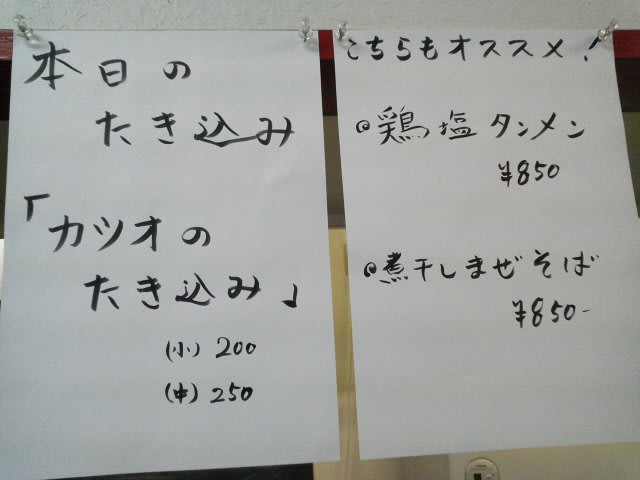 本日の
たき込み
「カツオの
たき込み」
(小) 200
(中) 250
こちらもオススメ!
鶏塩タンメン
¥850
煮干しまぜそば
¥850-